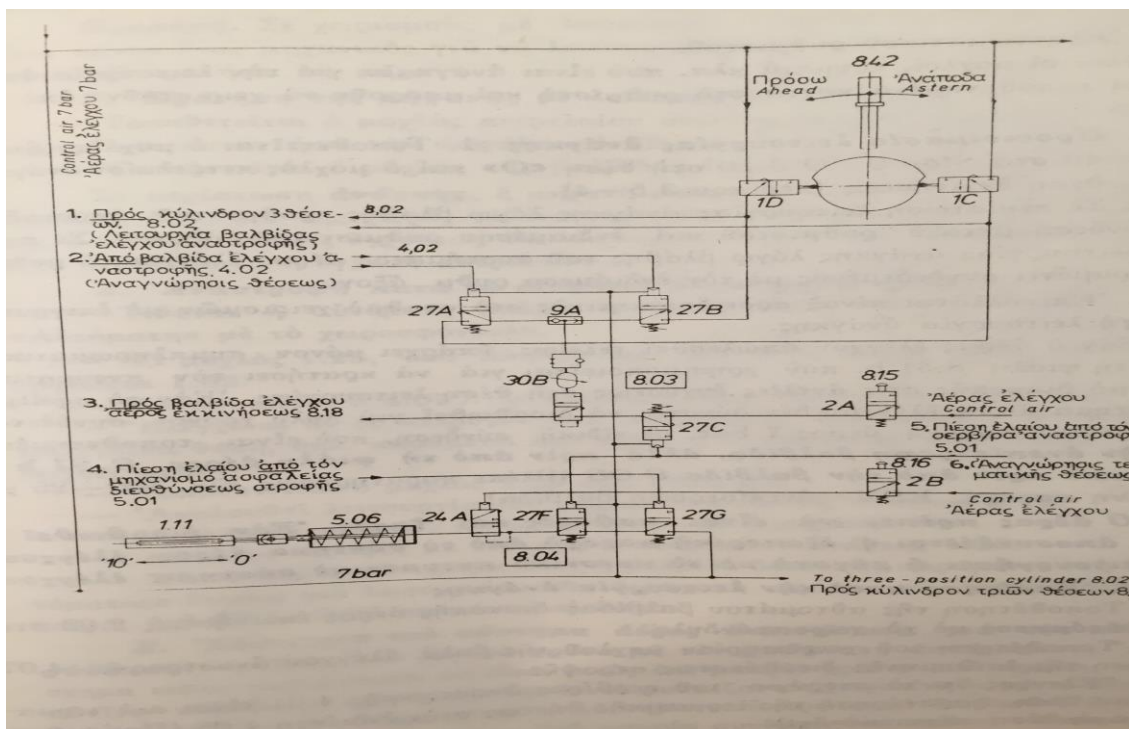 Control air 7 bar
Ἀέρας ἐλέγχου 7 bar
8.42
Πρόσω
Ahead
Ἀνάποδα
Astern
1D
1C
1. Πρός κύλινδρον 3 θέσε-
ων. 8.02
(Λειτουργία βαλβίδας
ἐλέγχου ἀναστροφῆς)
8,02
2. Ἀπό βαλβίδα ἐλέγχου ἀ-
ναστροφῆς 4.02
(Ἀναγνώρησις θέσεως)
4,02
27A
9A
27B
30B
8.03
3. Πρός βαλβίδα ἐλέγχου
ἀέρος ἐκκινήσεως 8.18
27C
8.15
2A
Ἀέρας ἐλέγχου
Control air
5. Πίεση ἐλαίου ἀπό τόν
σερβ/ρα ἀναστροφ
5.01
4. Πίεση ἐλαίου ἀπό τόν
μηχανισμό ἀσφαλείας
διευθύνσεως στροφῆς
5.01
8.16
2B
6. (Ἀναγνώρησις τε
ματικῆς θέσεως
Control air
Ἀέρας ἐλέγχου
1.11
5.06
24A
27F
27G
'10'
'0'
8.04
7 bar
To three - position cylinder 8.02
Πρός κύλινδρον τριῶν θέσεων 8,